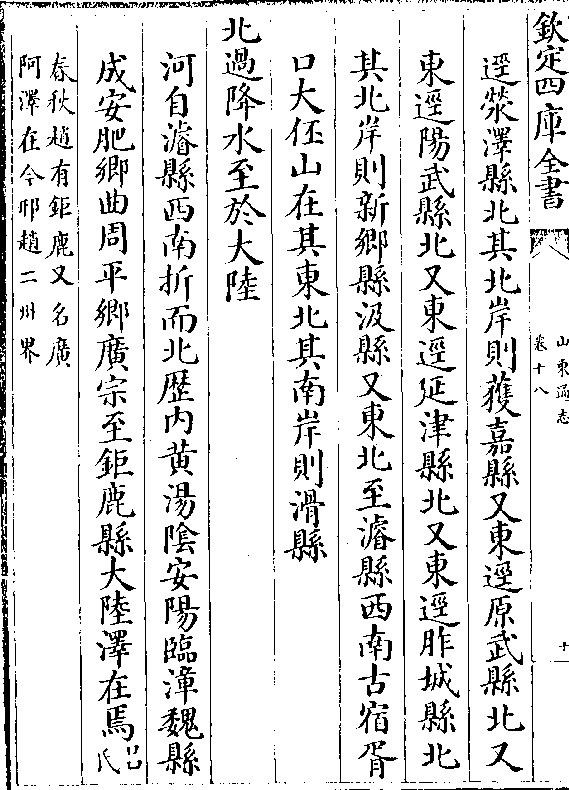 欽定四庫全書
山東通志
卷十八
十一
逕滎澤縣北其北岸則獲嘉縣又東逕原武縣北又
東逕陽武縣北又東逕延津縣北又東逕胙城縣北
其北岸則新鄉縣汲縣又東北至濬縣西南古宿胥
口大伾山在其東北其南岸則滑縣
北過降水至於大陸
河自濬縣西南折而北歴内黄湯隂安陽臨漳魏縣
成安肥鄉曲周平鄉廣宗至鉅鹿縣大陸澤在焉吕氏
春秋趙有鉅鹿又名廣
阿澤在今邢趙二州界